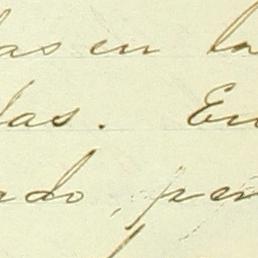 das en la
das. En
ado, per